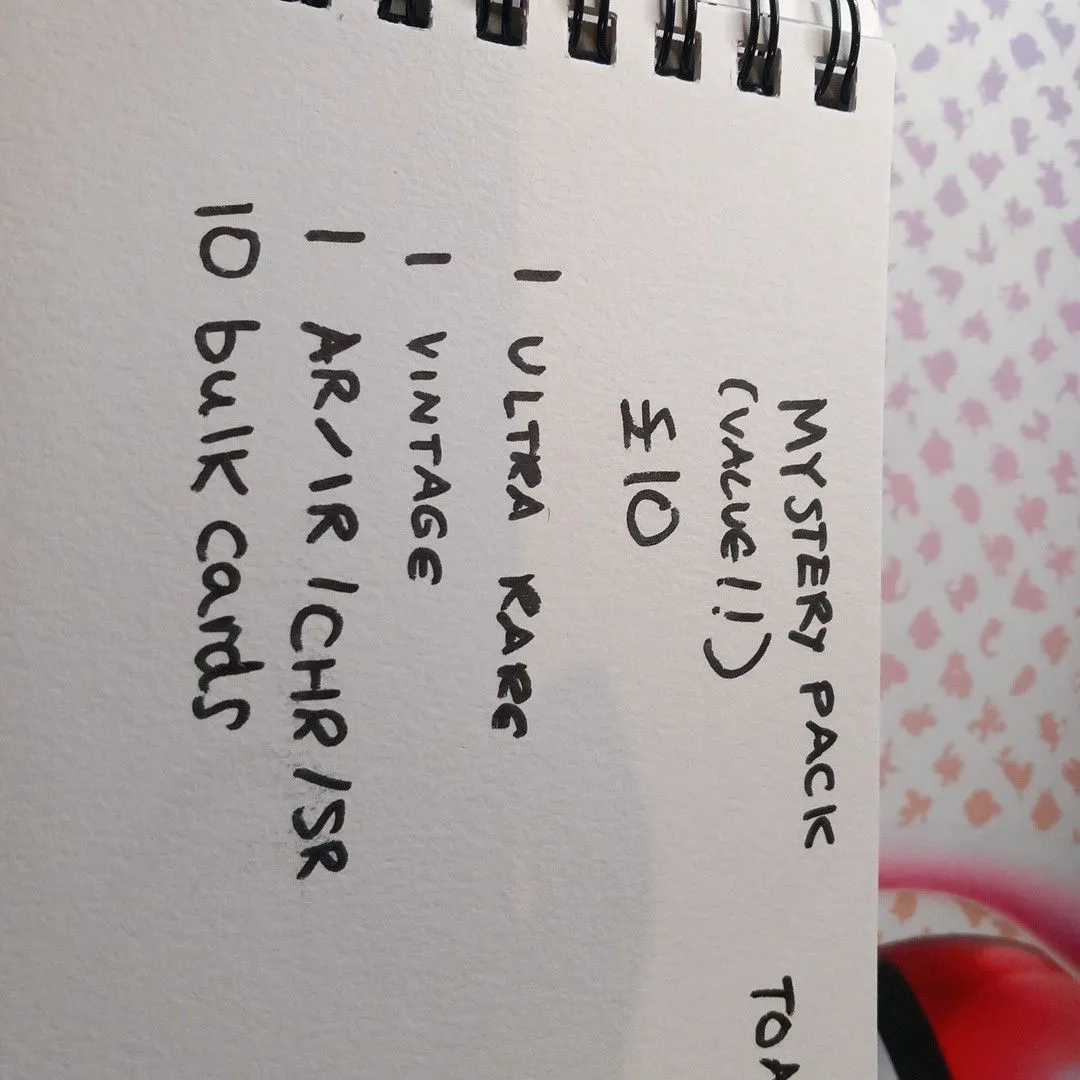 MYSTERY PACK
(VALUE!!)
£10
1 ULTRA RARE
1 VINTAGE
1 AR/IR/CHR/SR
10 bulk cards
TOA